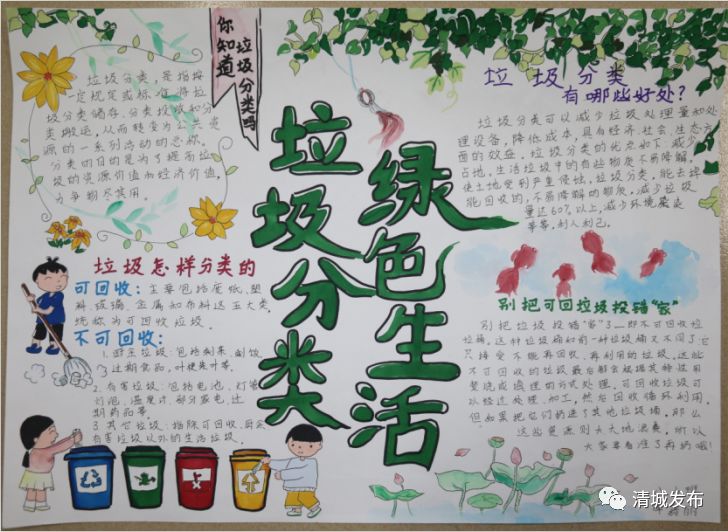 你知道
垃圾分类吗
垃圾分类，是指按
一定规定或标准将垃
圾分类储存、分类投放和分
类搬运，从而转变为公共资
源的一系列活动的总称。
分类的目的是为了提高垃
圾的资源价值和经济价值，
力争物尽其用。
垃圾分类
绿色生活
垃圾分类
有哪些好处？
垃圾分类可以减少垃圾处理量和处
理设备，降低成本，具有经济、社会、生态方
面的效益。垃圾分类的优点如下：减少
占地，生活垃圾中的有些物质不易降解，
使土地受到严重侵蚀，垃圾分类，能去掉
能回收的，不易降解的物质，减少垃圾
量达60%以上，减少环境污染
等等，利人利己。
垃圾怎样分类的
可回收：主要包括废纸、塑
料、玻璃、金属和布料这五大类，
统称为可回收垃圾。
不可回收：
1. 厨余垃圾：包括剩菜、剩饭
过期食品，叶梗类叶等。
2. 有害垃圾：包括电池、灯管
灯泡、温度计、部分家电、过
期药品等。
3. 其它垃圾：指除可回收，厨余
有害垃圾以外的生活垃圾。
别把可回垃圾投错“家”
别把垃圾投错“家”了—即不可回收垃
圾桶，这种垃圾桶和前一种垃圾桶又不同了，它
只接受不能再回收、再利用的垃圾，这些
不可回收的垃圾最后都会根据其特性用
焚烧或填埋的方式处理，可回收垃圾可
以经过处理、加工，然后回收循环利用，
但如果把它们扔进了其他垃圾桶，那么
这些资源则大大地浪费，所以
大家要看准了再扔哦！
清城发布